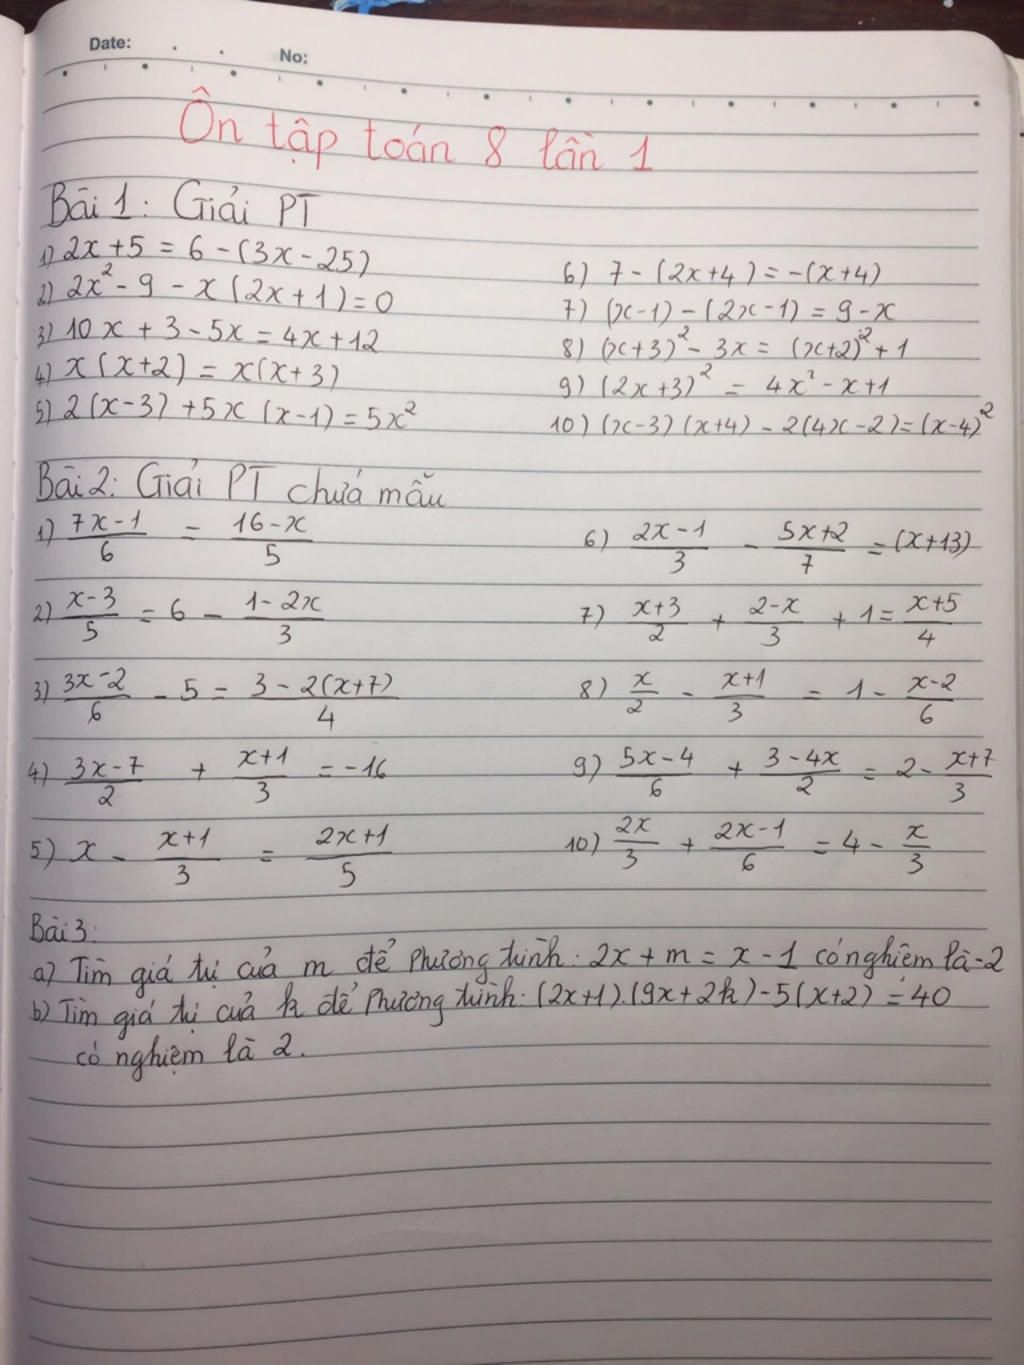 Date:
No:
Ôn tập toán 8 lần 1
Bài 1: Giải PT
1) 2x + 5 = 6 - (3x - 25)
2) 2x² - 9 - x(2x + 1) = 0
3) 10x + 3 - 5x = 4x + 12
4) x(x+2) = x(x+3)
5) 2(x-3) + 5x(x-1) = 5x²
6) 7 - (2x+4) = -(x+4)
7) (x-1) - (2x-1) = 9 - x
8) (x+3)² - 3x = (x+2)² + 1
9) (2x+3)² = 4x² - x + 1
10) (x-3)(x+4) - 2(4x-2) = (x-4)²
Bài 2: Giải PT chứá mẫu
1) (7x-1)/6 = (16-x)/5
2) (x-3)/5 = 6 - (1-2x)/3
3) (3x-2)/6 - 5 = (3-2(x+7))/4
4) (3x-7)/2 + (x+1)/3 = -16
5) x - (x+1)/3 = (2x+1)/5
6) (2x-1)/3 - (5x+2)/7 = (x+13)
7) (x+3)/2 + (2-x)/3 + 1 = (x+5)/4
8) x/2 - (x+1)/3 = 1 - (x-2)/6
9) (5x-4)/6 + (3-4x)/2 = 2 - (x+7)/3
10) 2x/3 + (2x-1)/6 = 4 - x/3
Bài 3:
a) Tìm giá trị của m để phương trình: 2x + m = x - 1 có nghiệm là -2
b) Tìm giá trị của k để phương trình: (2x+1).(9x+2k) - 5(x+2) = 40
có nghiệm là 2.